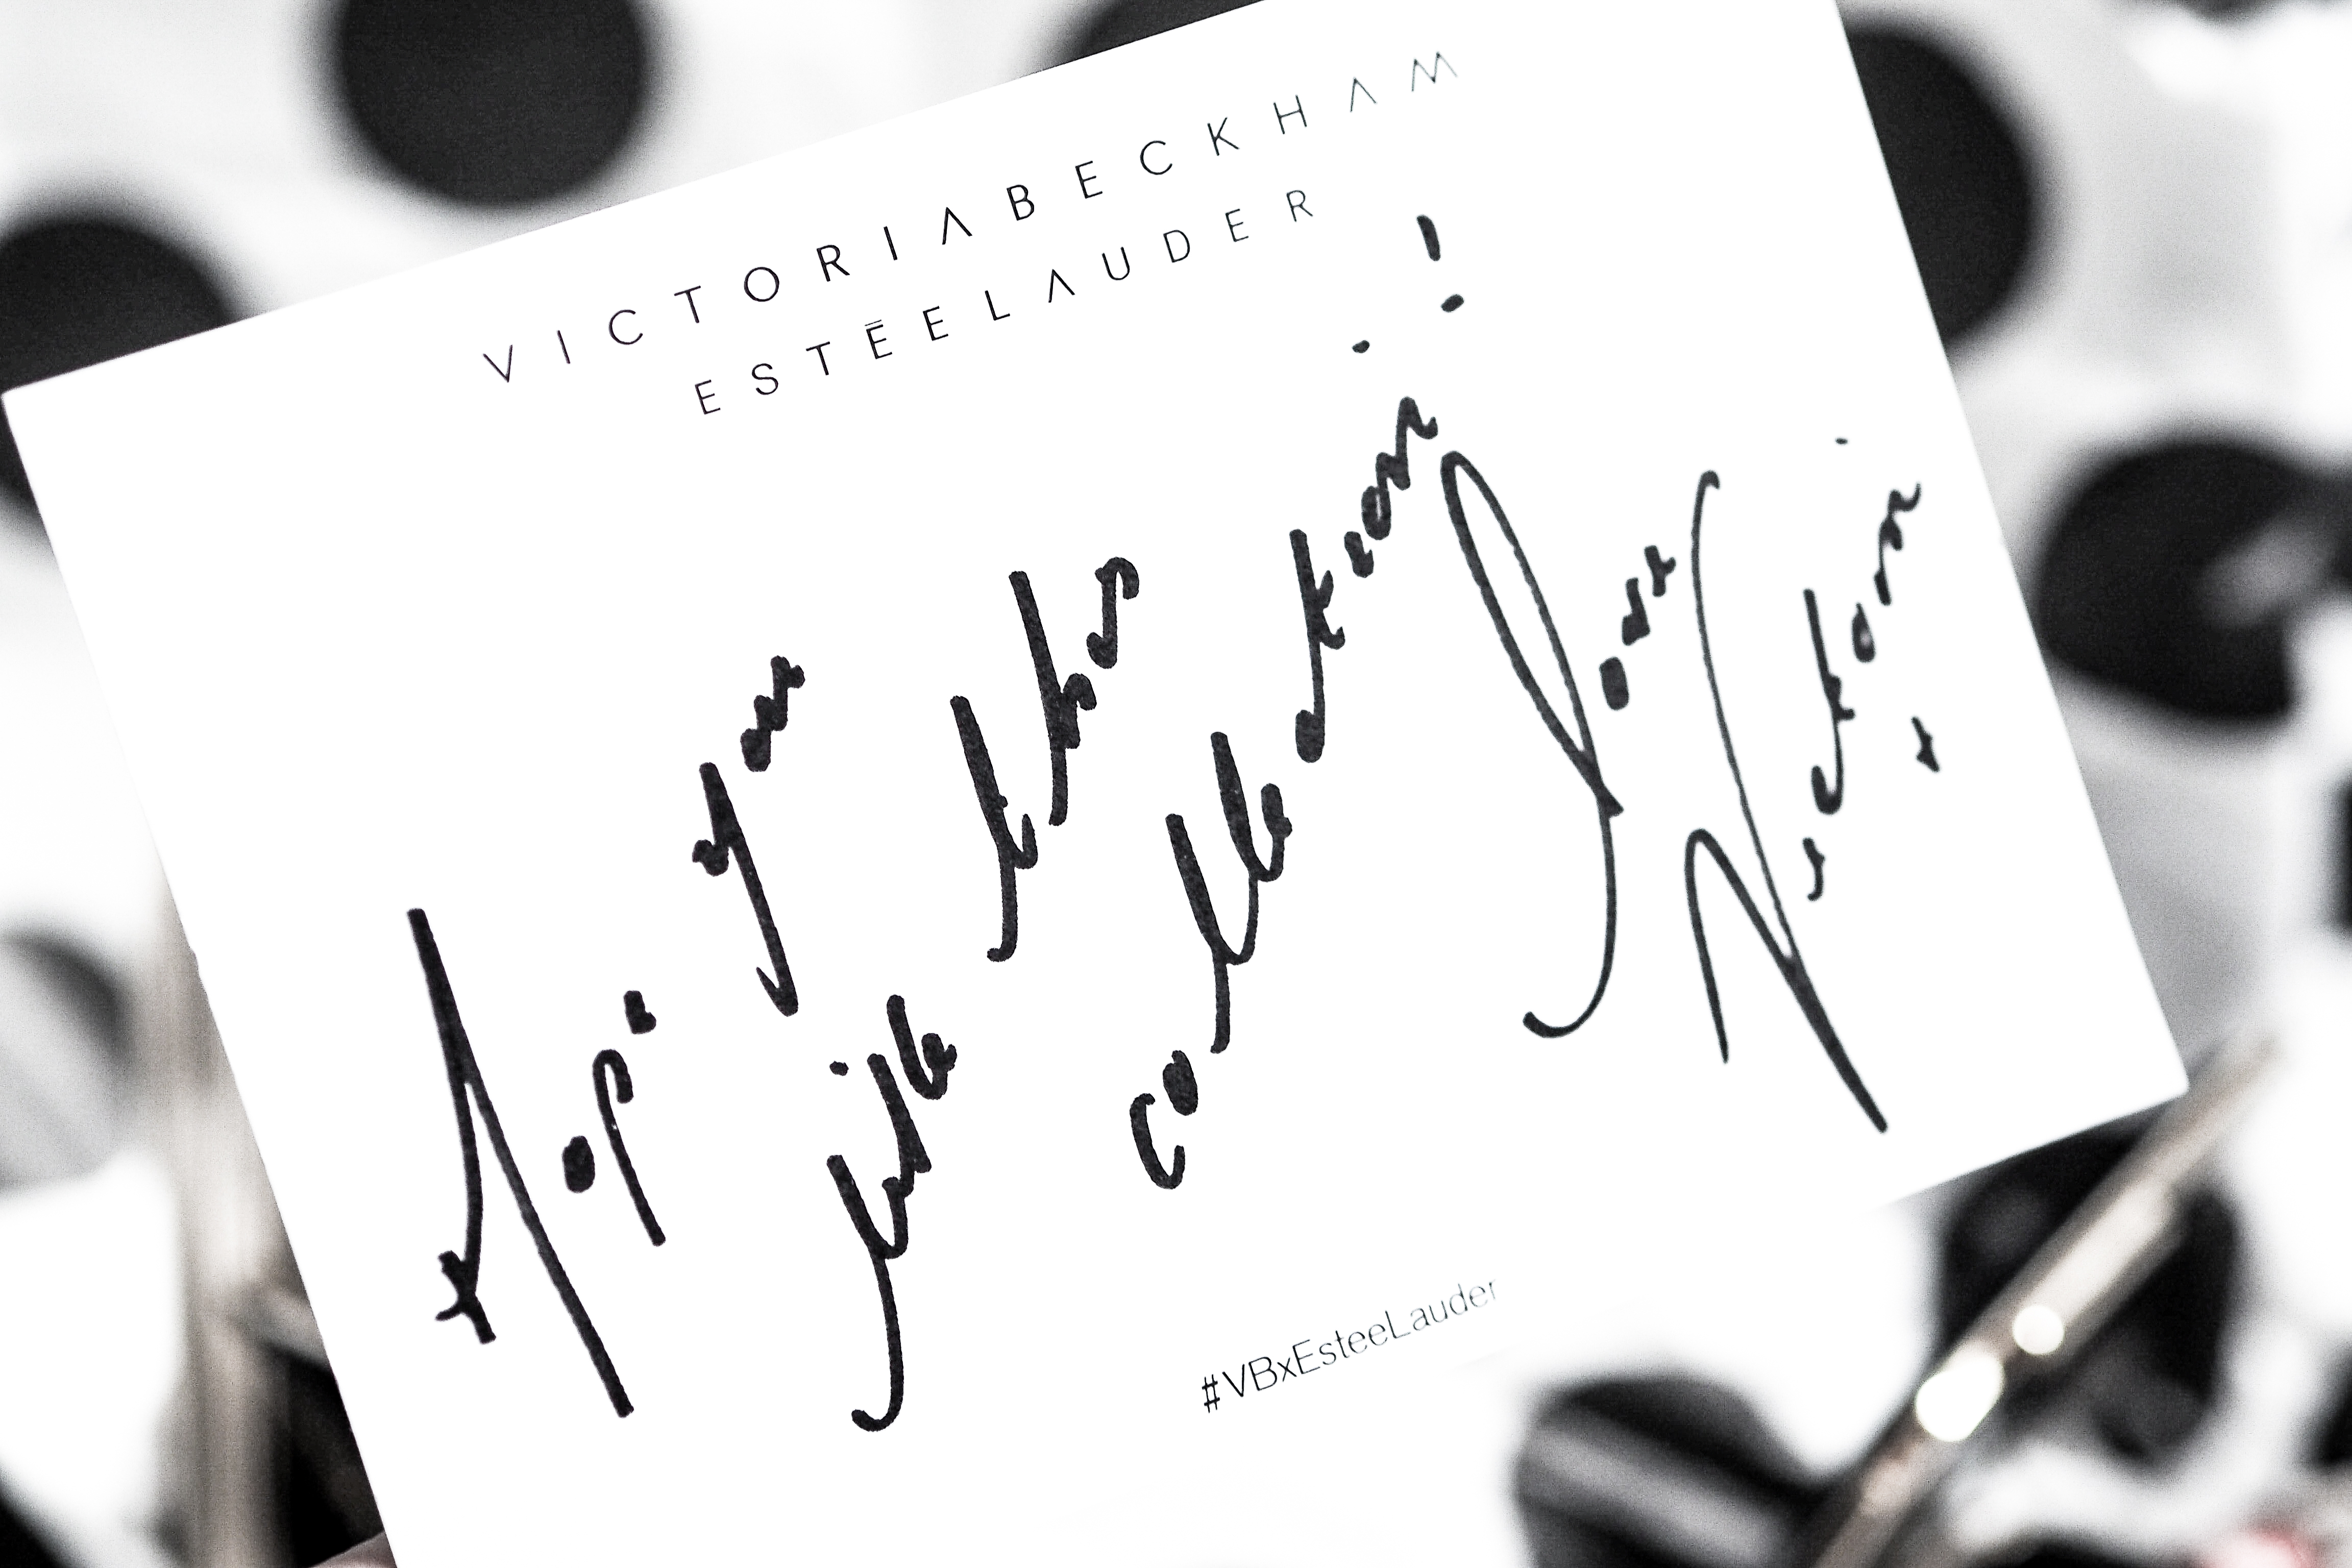 VICTORIABECKHAM
ESTĒELAUDER
Hope you
like this
collection!
Love
Victoria x
#VBxEsteeLauder